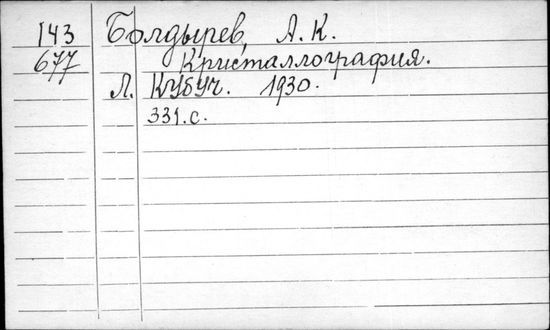 143 Болдырев, А. К.
677 Кристаллография.
Л. КУБУЧ. 1930.
331.с.